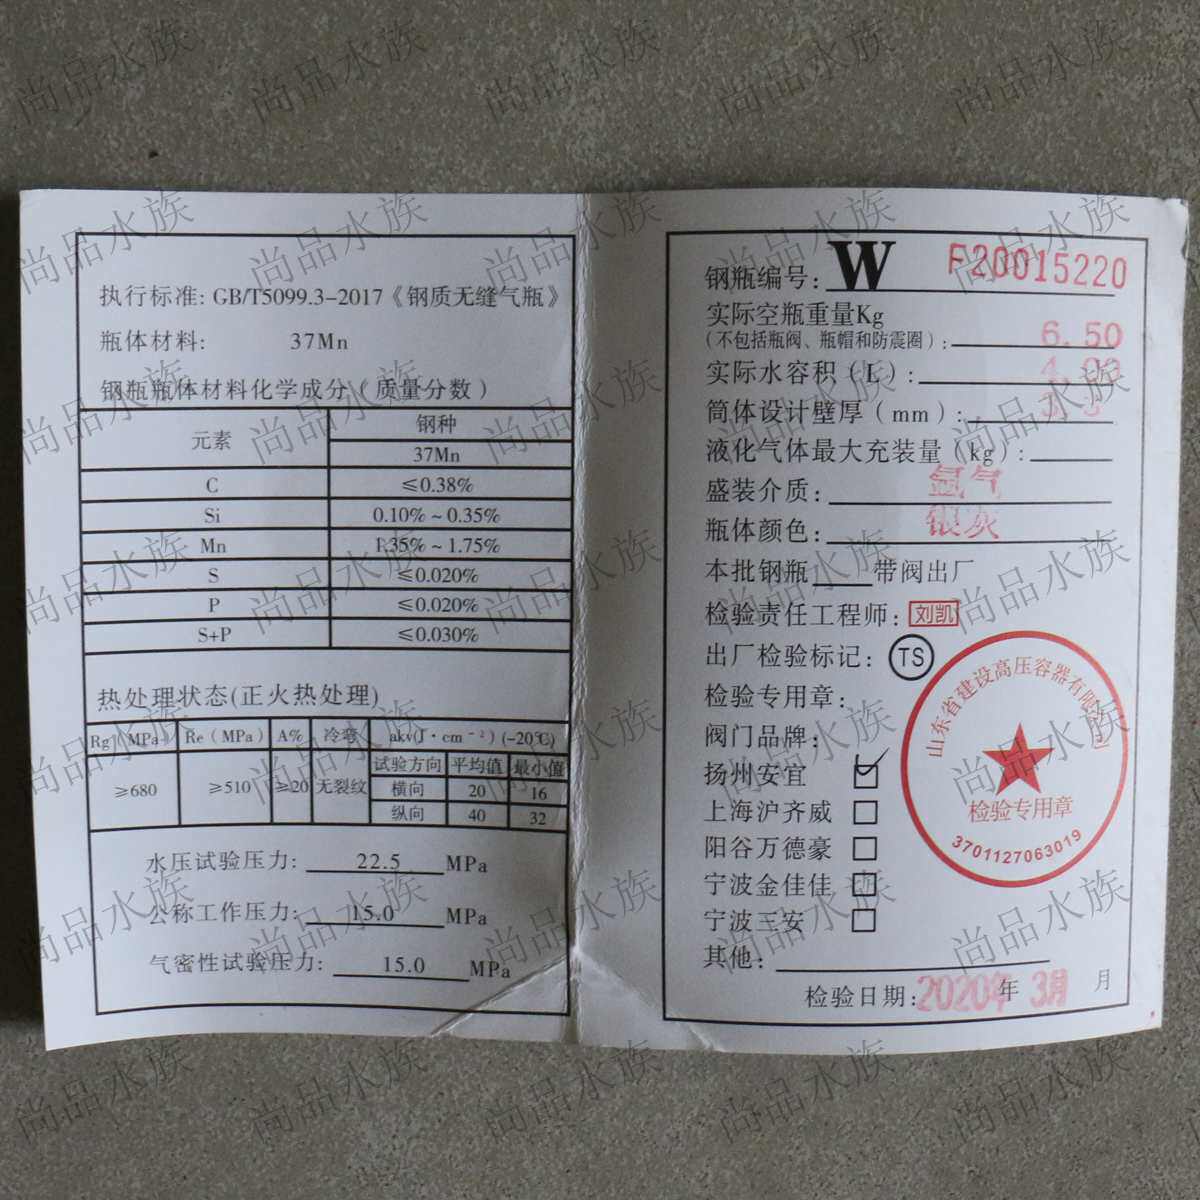 执行标准: GB/T5099.3-2017《钢质无缝气瓶》
瓶体材料: 37Mn
钢瓶瓶体材料化学成分(质量分数)
元素 钢种
37Mn
C ≤0.38%
Si 0.10%~0.35%
Mn 1.35%~1.75%
S ≤0.020%
P ≤0.020%
S+P ≤0.030%
热处理状态(正火热处理)
Rg(MPa) Re(MPa) A% 冷弯 akv(J·cm⁻²)(-20℃)
试验方向 平均值 最小值
≥680 ≥510 ≥20 无裂纹 横向 20 16
纵向 40 32
水压试验压力: 22.5 MPa
公称工作压力: 15.0 MPa
气密性试验压力: 15.0 MPa
钢瓶编号: W F20015220
实际空瓶重量Kg
(不包括瓶阀、瓶帽和防震圈): 6.50
实际水容积(L):
筒体设计壁厚(mm):
液化气体最大充装量(kg):
盛装介质: 氩气
瓶体颜色: 银灰
本批钢瓶 带阀出厂
检验责任工程师: 刘凯
出厂检验标记: TS
检验专用章:
阀门品牌:
扬州安宜
上海沪齐威
阳谷万德豪
宁波金佳佳
宁波三安
其他:
检验日期: 2020年 年 3月 月
山东省建设高压容器有限公司
检验专用章
3701127063019
尚品水族